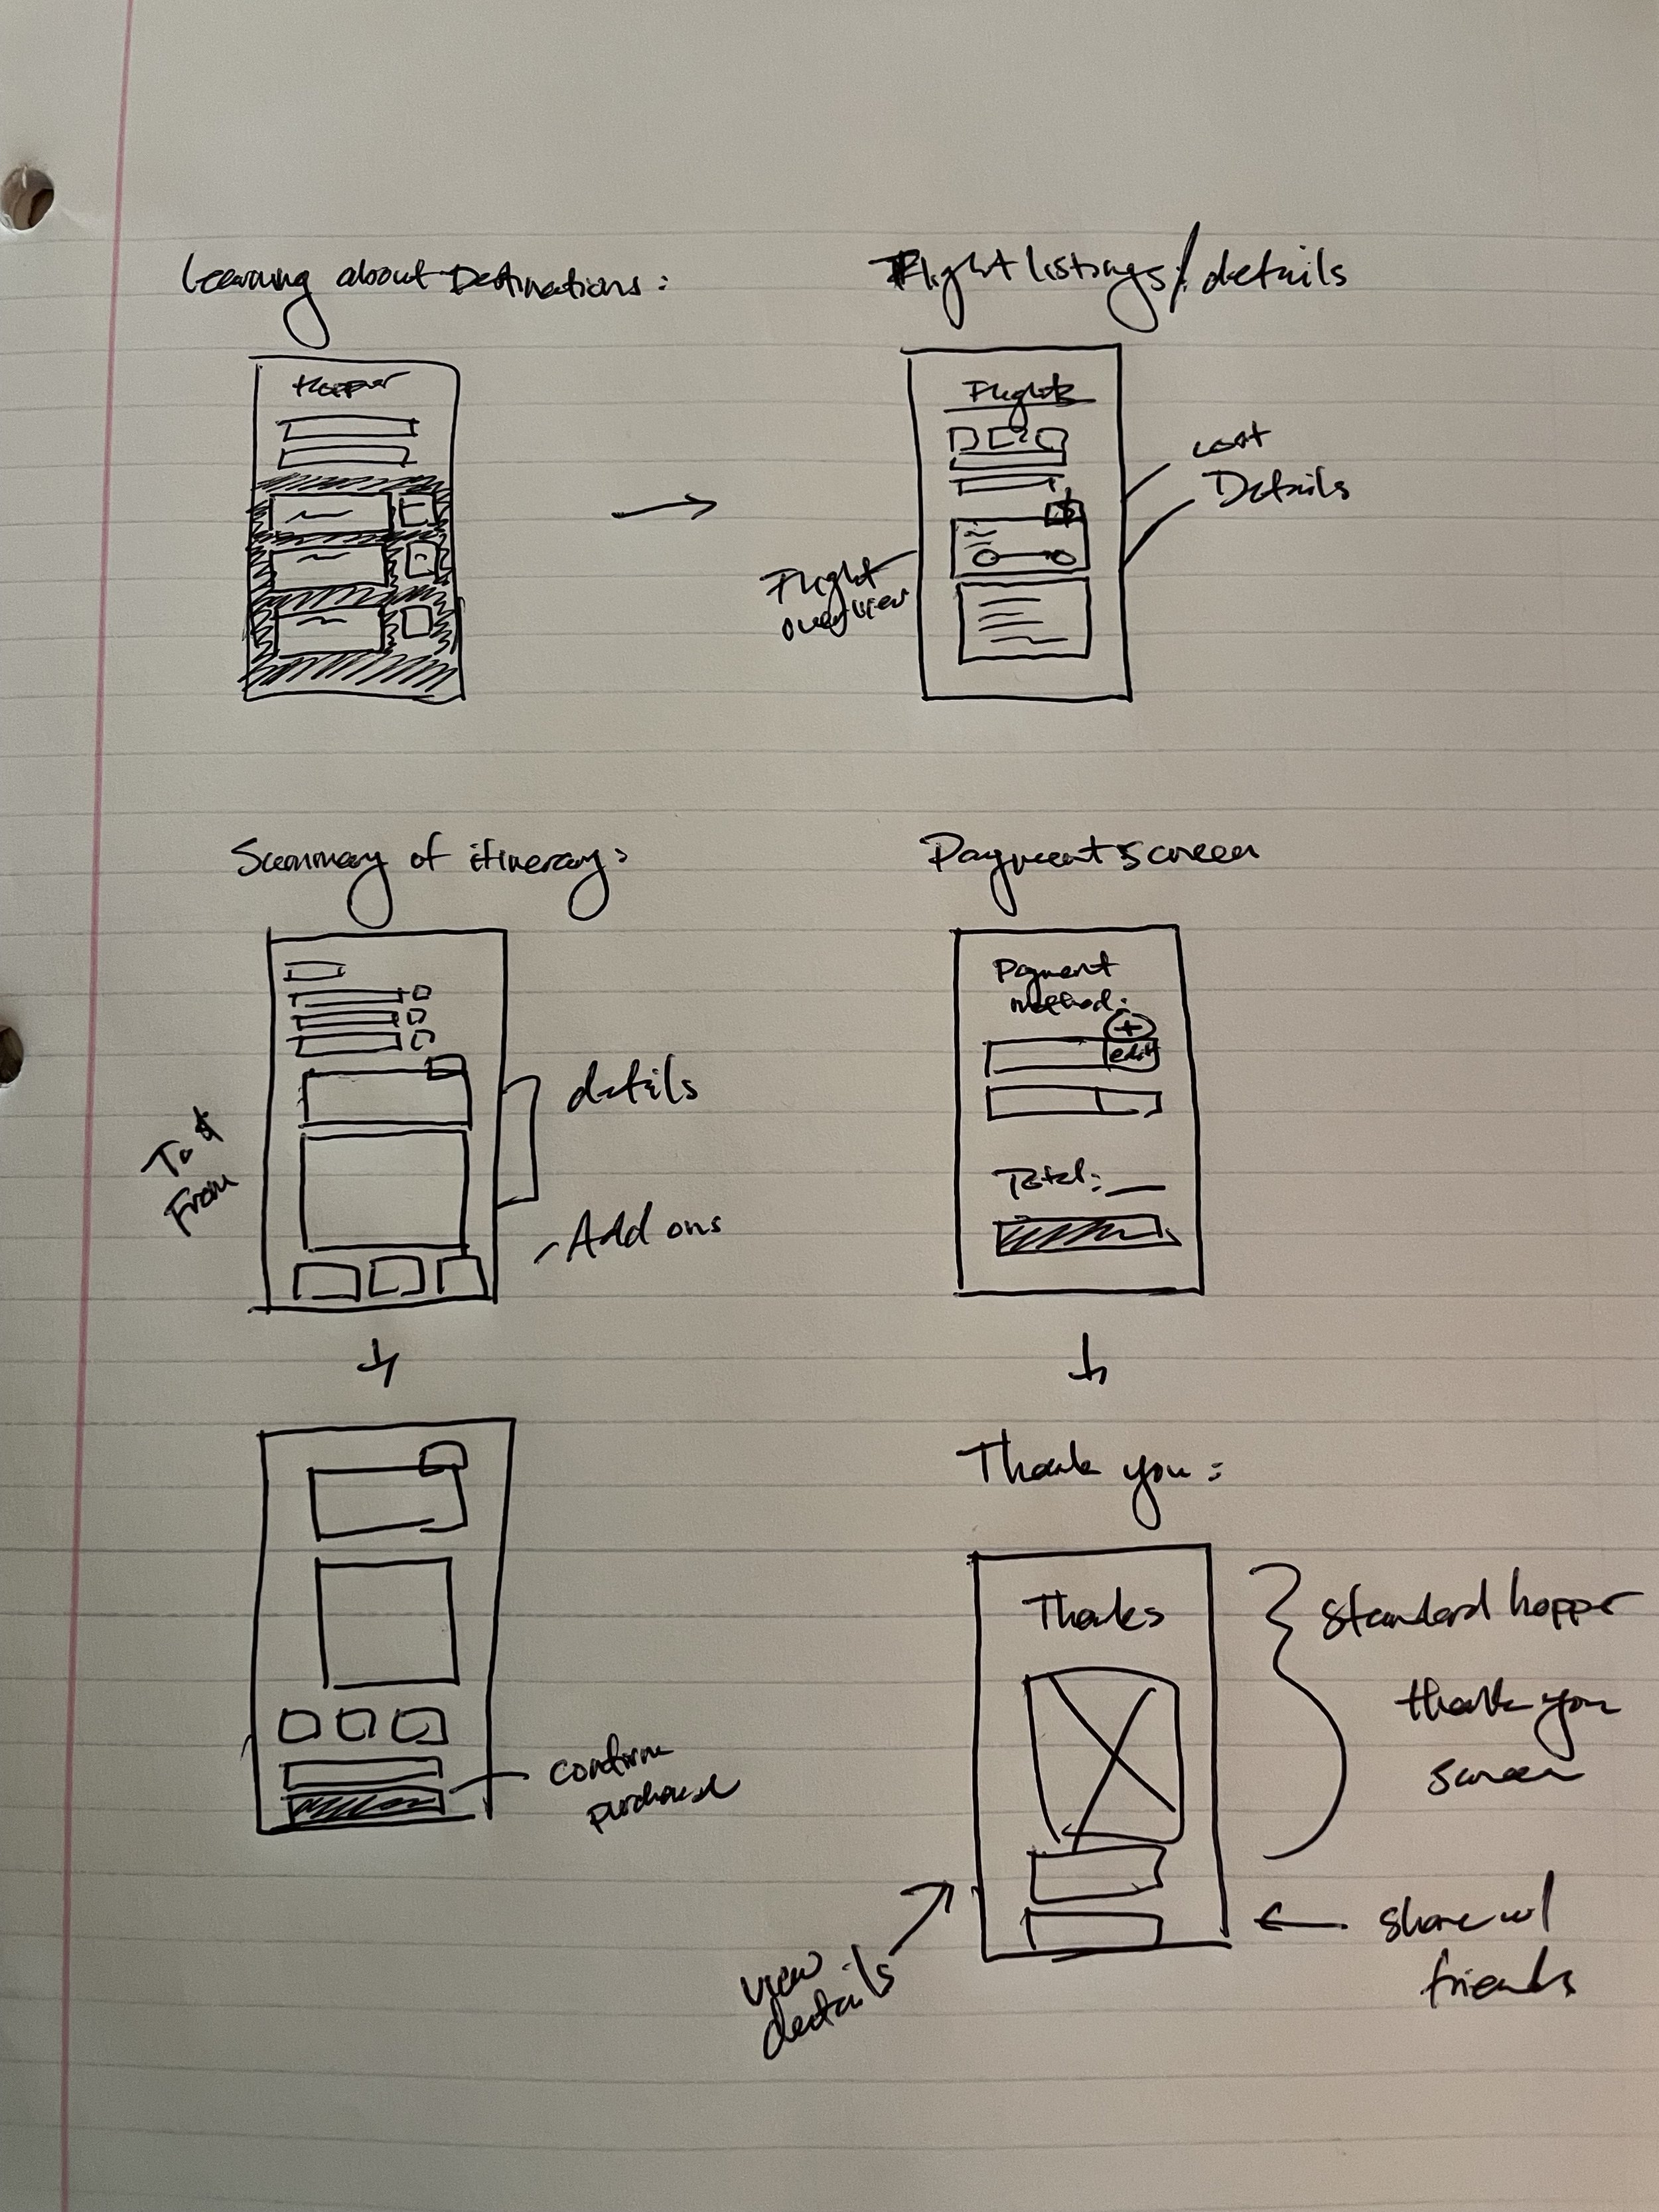 Learning about Destinations:
Hopper
Flight listings/details
Flights
$
cost
Details
Flight
overview
Summary of itinerary:
To &
From
details
Add ons
confirm
purchase
Payment screen
Payment
method:
+
edit
Total:
Thank you:
Thanks
standard hopper
thank you
screen
view
details
share w/
friends